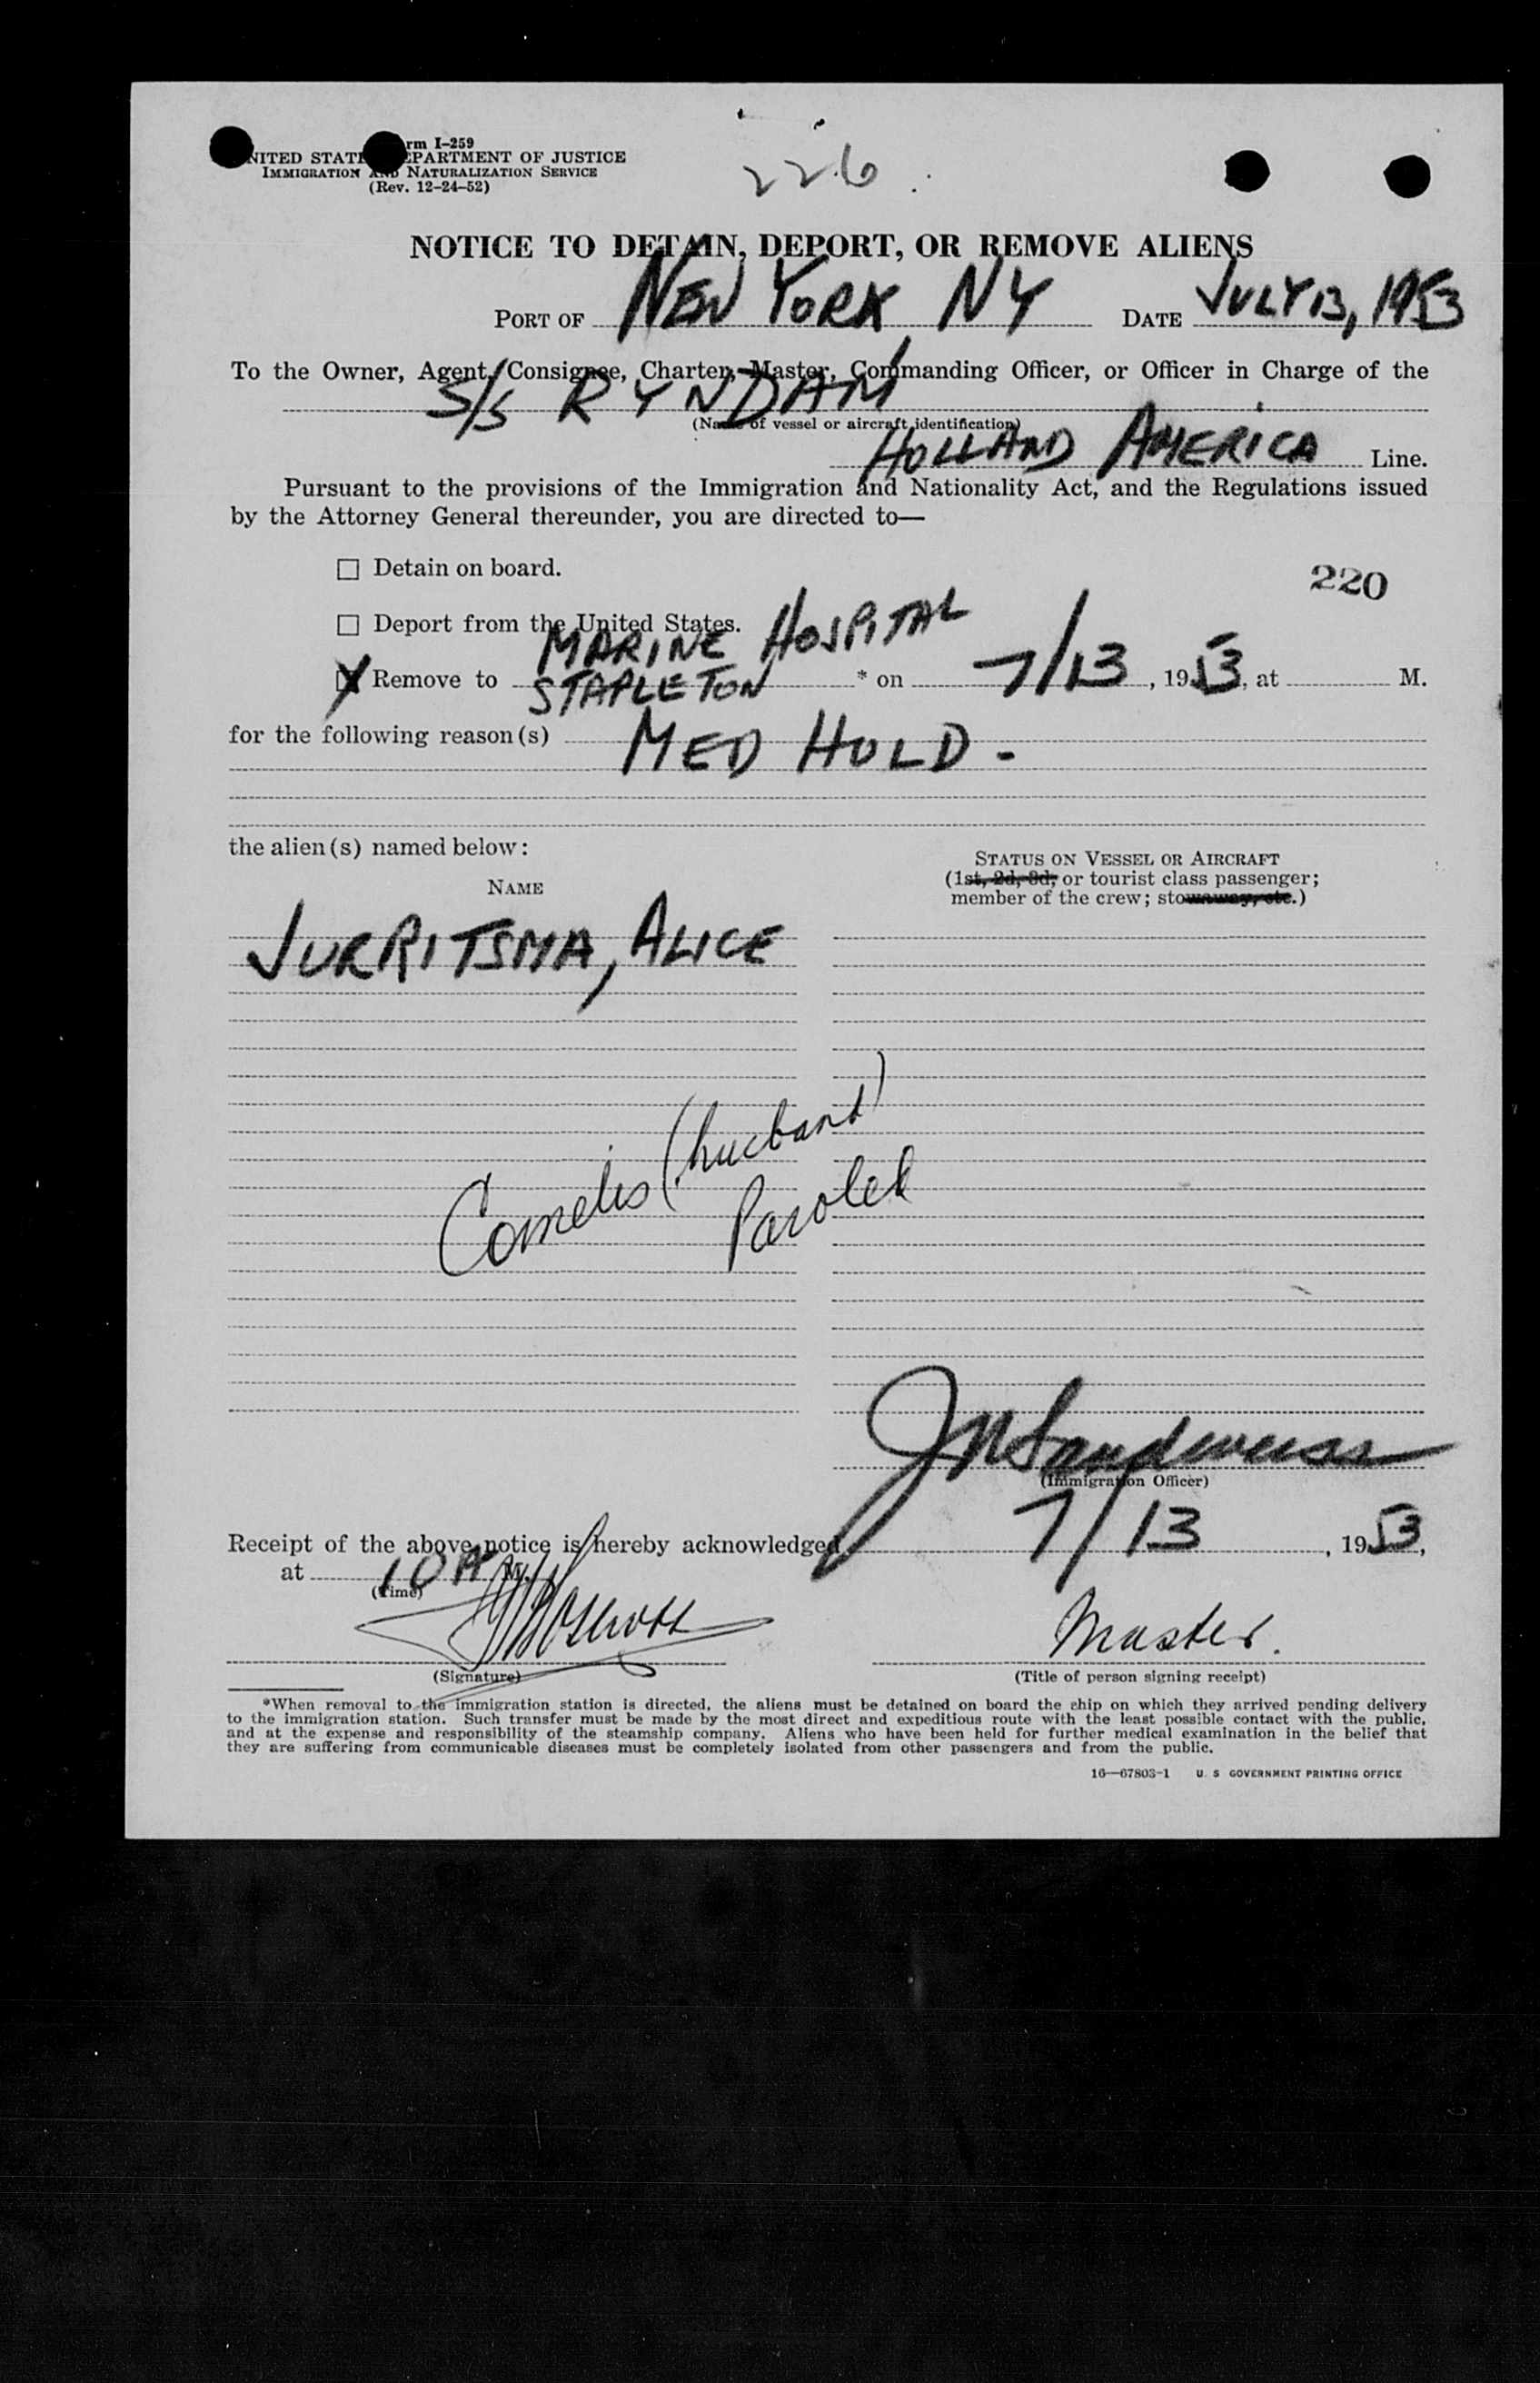 rm I-259
NITED STAT EPARTMENT OF JUSTICE
IMMIGRATION AND NATURALIZATION SERVICE
(Rev. 12-24-52)
226
NOTICE TO DETAIN, DEPORT, OR REMOVE ALIENS
PORT OF NEW YORK NY DATE JULY 13, 1953
To the Owner, Agent, Consignee, Charter, Master, Commanding Officer, or Officer in Charge of the
S/S RYNDAM
(Name of vessel or aircraft identification)
HOLLAND AMERICA Line.
Pursuant to the provisions of the Immigration and Nationality Act, and the Regulations issued
by the Attorney General thereunder, you are directed to—
☐ Detain on board.
220
☐ Deport from the United States.
MARINE HOSPITAL
☒ Remove to STAPLETON * on 7/13, 1953, at M.
for the following reason(s) MED HOLD -
the alien(s) named below:
STATUS ON VESSEL OR AIRCRAFT
(1st, 2d, 3d, or tourist class passenger;
member of the crew; stowaway, etc.)
NAME
JURRITSMA, ALICE
Cornelis (husband)
Paroled
J M Sandweiss
(Immigration Officer)
Receipt of the above notice is hereby acknowledged 7/13, 1953,
at 10 A M.
(Time)
Master.
(Signature) (Title of person signing receipt)
*When removal to the immigration station is directed, the aliens must be detained on board the ship on which they arrived pending delivery
to the immigration station. Such transfer must be made by the most direct and expeditious route with the least possible contact with the public,
and at the expense and responsibility of the steamship company. Aliens who have been held for further medical examination in the belief that
they are suffering from communicable diseases must be completely isolated from other passengers and from the public.
16—67803-1 U. S GOVERNMENT PRINTING OFFICE